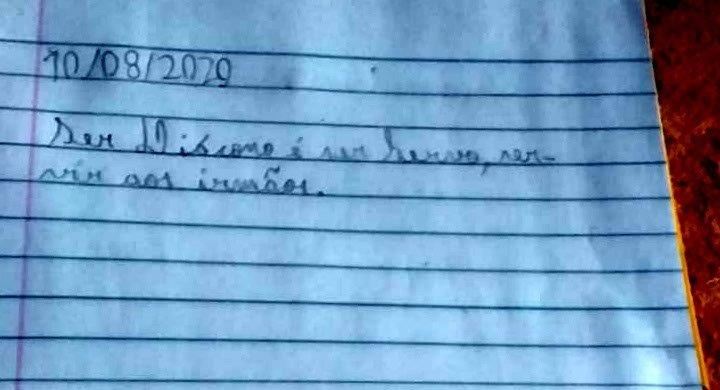 10/08/2020
Ser Diácono é ser servo, ser-
vir aos irmãos.